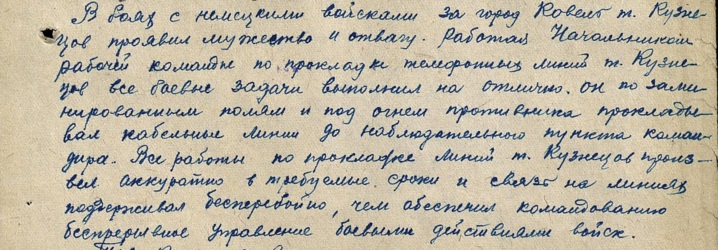 В боях с немецкими войсками за город Ковель т. Кузне-
цов проявил мужество и отвагу. Работая Начальником
рабочей команды по прокладке телефонных линий т. Кузне-
цов все боевые задачи выполнил на отлично. он по зами
нированным полям и под огнем противника проклады-
вал кабельные линии до наблюдательного пункта коман-
дира. Все работы по прокладке линий т. Кузнецов произ-
вел аккуратно в требуемые сроки и связь на линиях
поддерживал бесперебойно, чем обеспечил командованию
беспрерывное управление боевыми действиями войск.